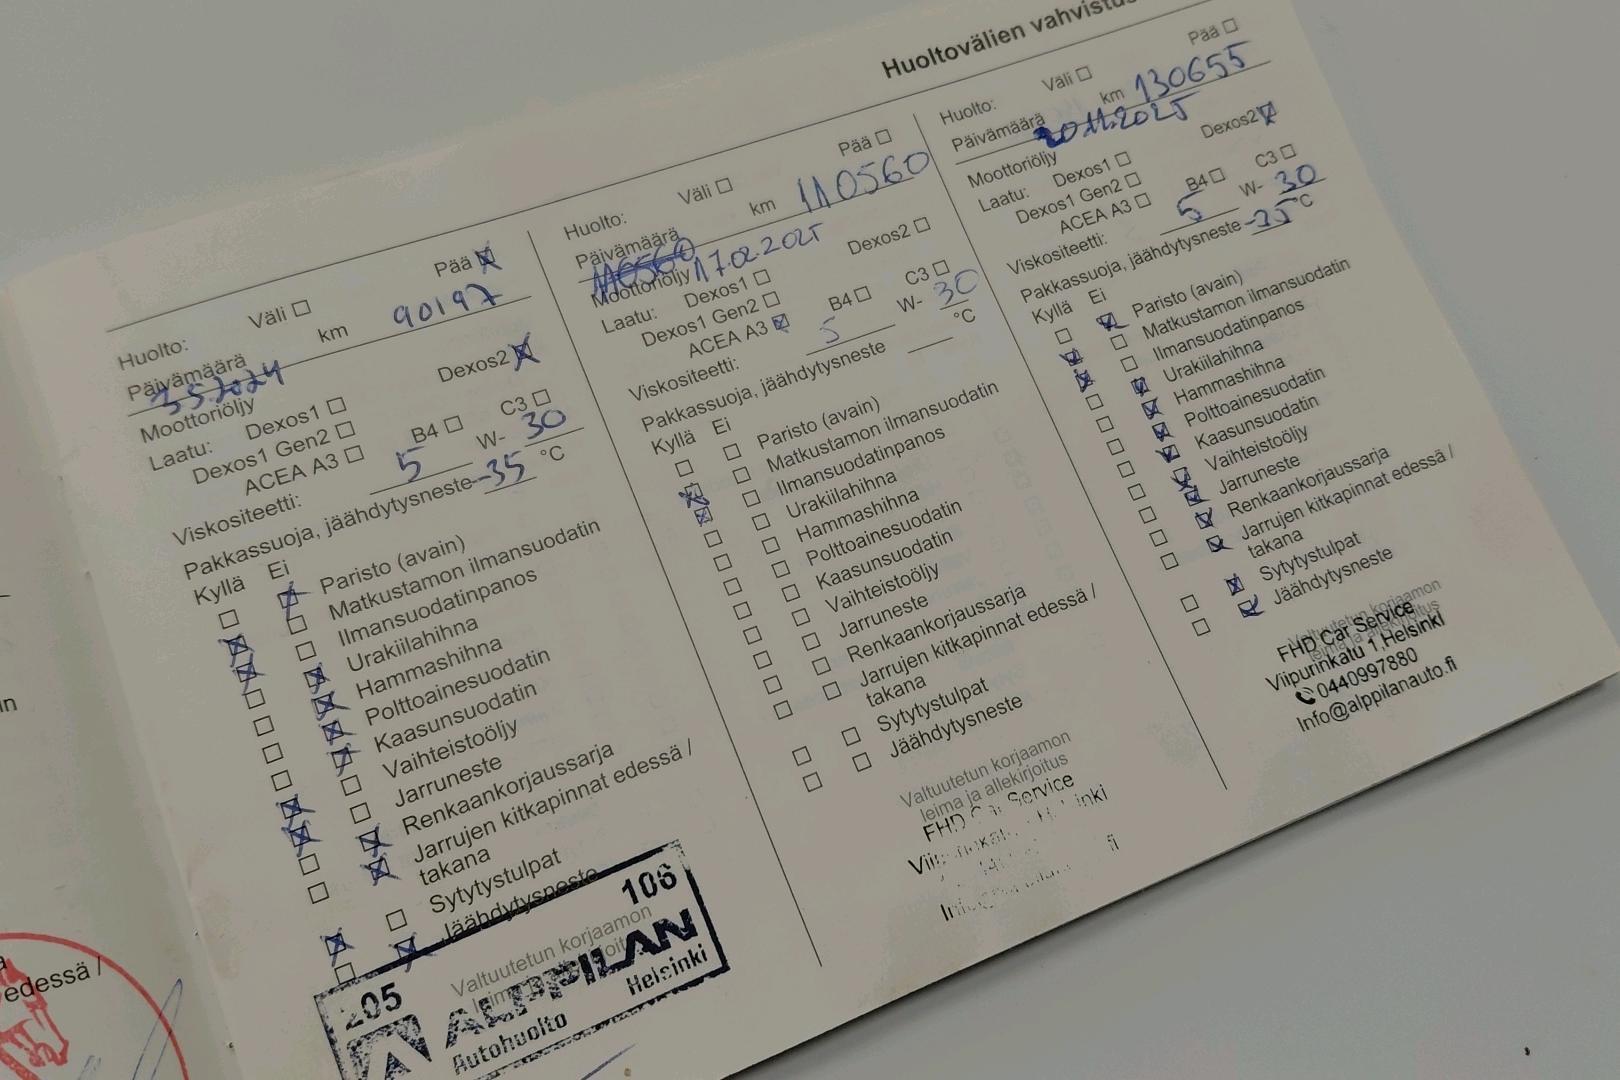 Huoltovälien vahvistus
Huolto: Väli Pää
Päivämäärä km 90197
3.5.2024
Moottoriöljy
Laatu: Dexos1 Dexos2
Dexos1 Gen2 B4 C3
ACEA A3
Viskositeetti: 5 W- 30
Pakkassuoja, jäähdytysneste -35 °C
Kyllä Ei
Paristo (avain)
Matkustamon ilmansuodatin
Ilmansuodatinpanos
Urakiilahihna
Hammashihna
Polttoainesuodatin
Kaasunsuodatin
Vaihteistoöljy
Jarruneste
Renkaankorjaussarja
Jarrujen kitkapinnat edessä /
takana
Sytytystulpat
Jäähdytysneste
Valtuutetun korjaamon
205 106
ALPPILAN
Autohuolto Helsinki
Huolto: Väli Pää
Päivämäärä km 110560
110560 17.02.2025
Moottoriöljy
Laatu: Dexos1 Dexos2
Dexos1 Gen2 B4 C3
ACEA A3
Viskositeetti: 5 W- 30
Pakkassuoja, jäähdytysneste °C
Kyllä Ei
Paristo (avain)
Matkustamon ilmansuodatin
Ilmansuodatinpanos
Urakiilahihna
Hammashihna
Polttoainesuodatin
Kaasunsuodatin
Vaihteistoöljy
Jarruneste
Renkaankorjaussarja
Jarrujen kitkapinnat edessä /
takana
Sytytystulpat
Jäähdytysneste
Valtuutetun korjaamon
leima ja allekirjoitus
FHD Car Service
Huolto: Väli Pää
Päivämäärä km 130655
20.11.2025
Moottoriöljy
Laatu: Dexos1 Dexos2
Dexos1 Gen2 B4 C3
ACEA A3
Viskositeetti: 5 W- 30
Pakkassuoja, jäähdytysneste -35 °C
Kyllä Ei
Paristo (avain)
Matkustamon ilmansuodatin
Ilmansuodatinpanos
Urakiilahihna
Hammashihna
Polttoainesuodatin
Kaasunsuodatin
Vaihteistoöljy
Jarruneste
Renkaankorjaussarja
Jarrujen kitkapinnat edessä /
takana
Sytytystulpat
Jäähdytysneste
Valtuutetun korjaamon
leima ja allekirjoitus
FHD Car Service
Viipurinkatu 1,Helsinki
0440997880
Info@alppilanauto.fi
edessä /